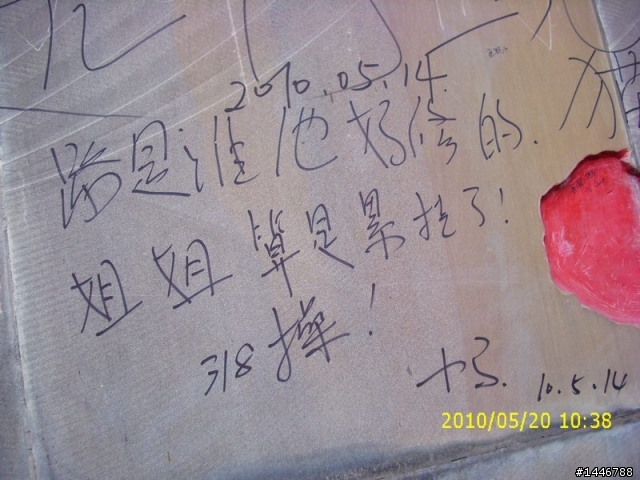 2010.05.14.
路是谁他妈修的.
姐姐算是累挂了!
318操!
10.5.14
2010/05/20 10:38
#1446788